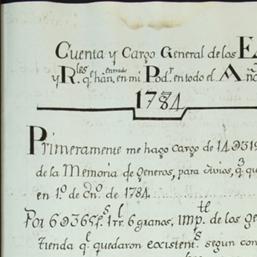 Cuenta y Cargo General de los
y R.les q.e han entrado en mi Pod.r en todo el Año
1784
Primeramente me hago cargo de
de la Memoria de generos, para avios, q.e
en 1.º de En.º de 1784
Por 69365 p.s 1 r.l 6 granos, imp.te de los ge
tienda q.e quedaron existen.s segun con